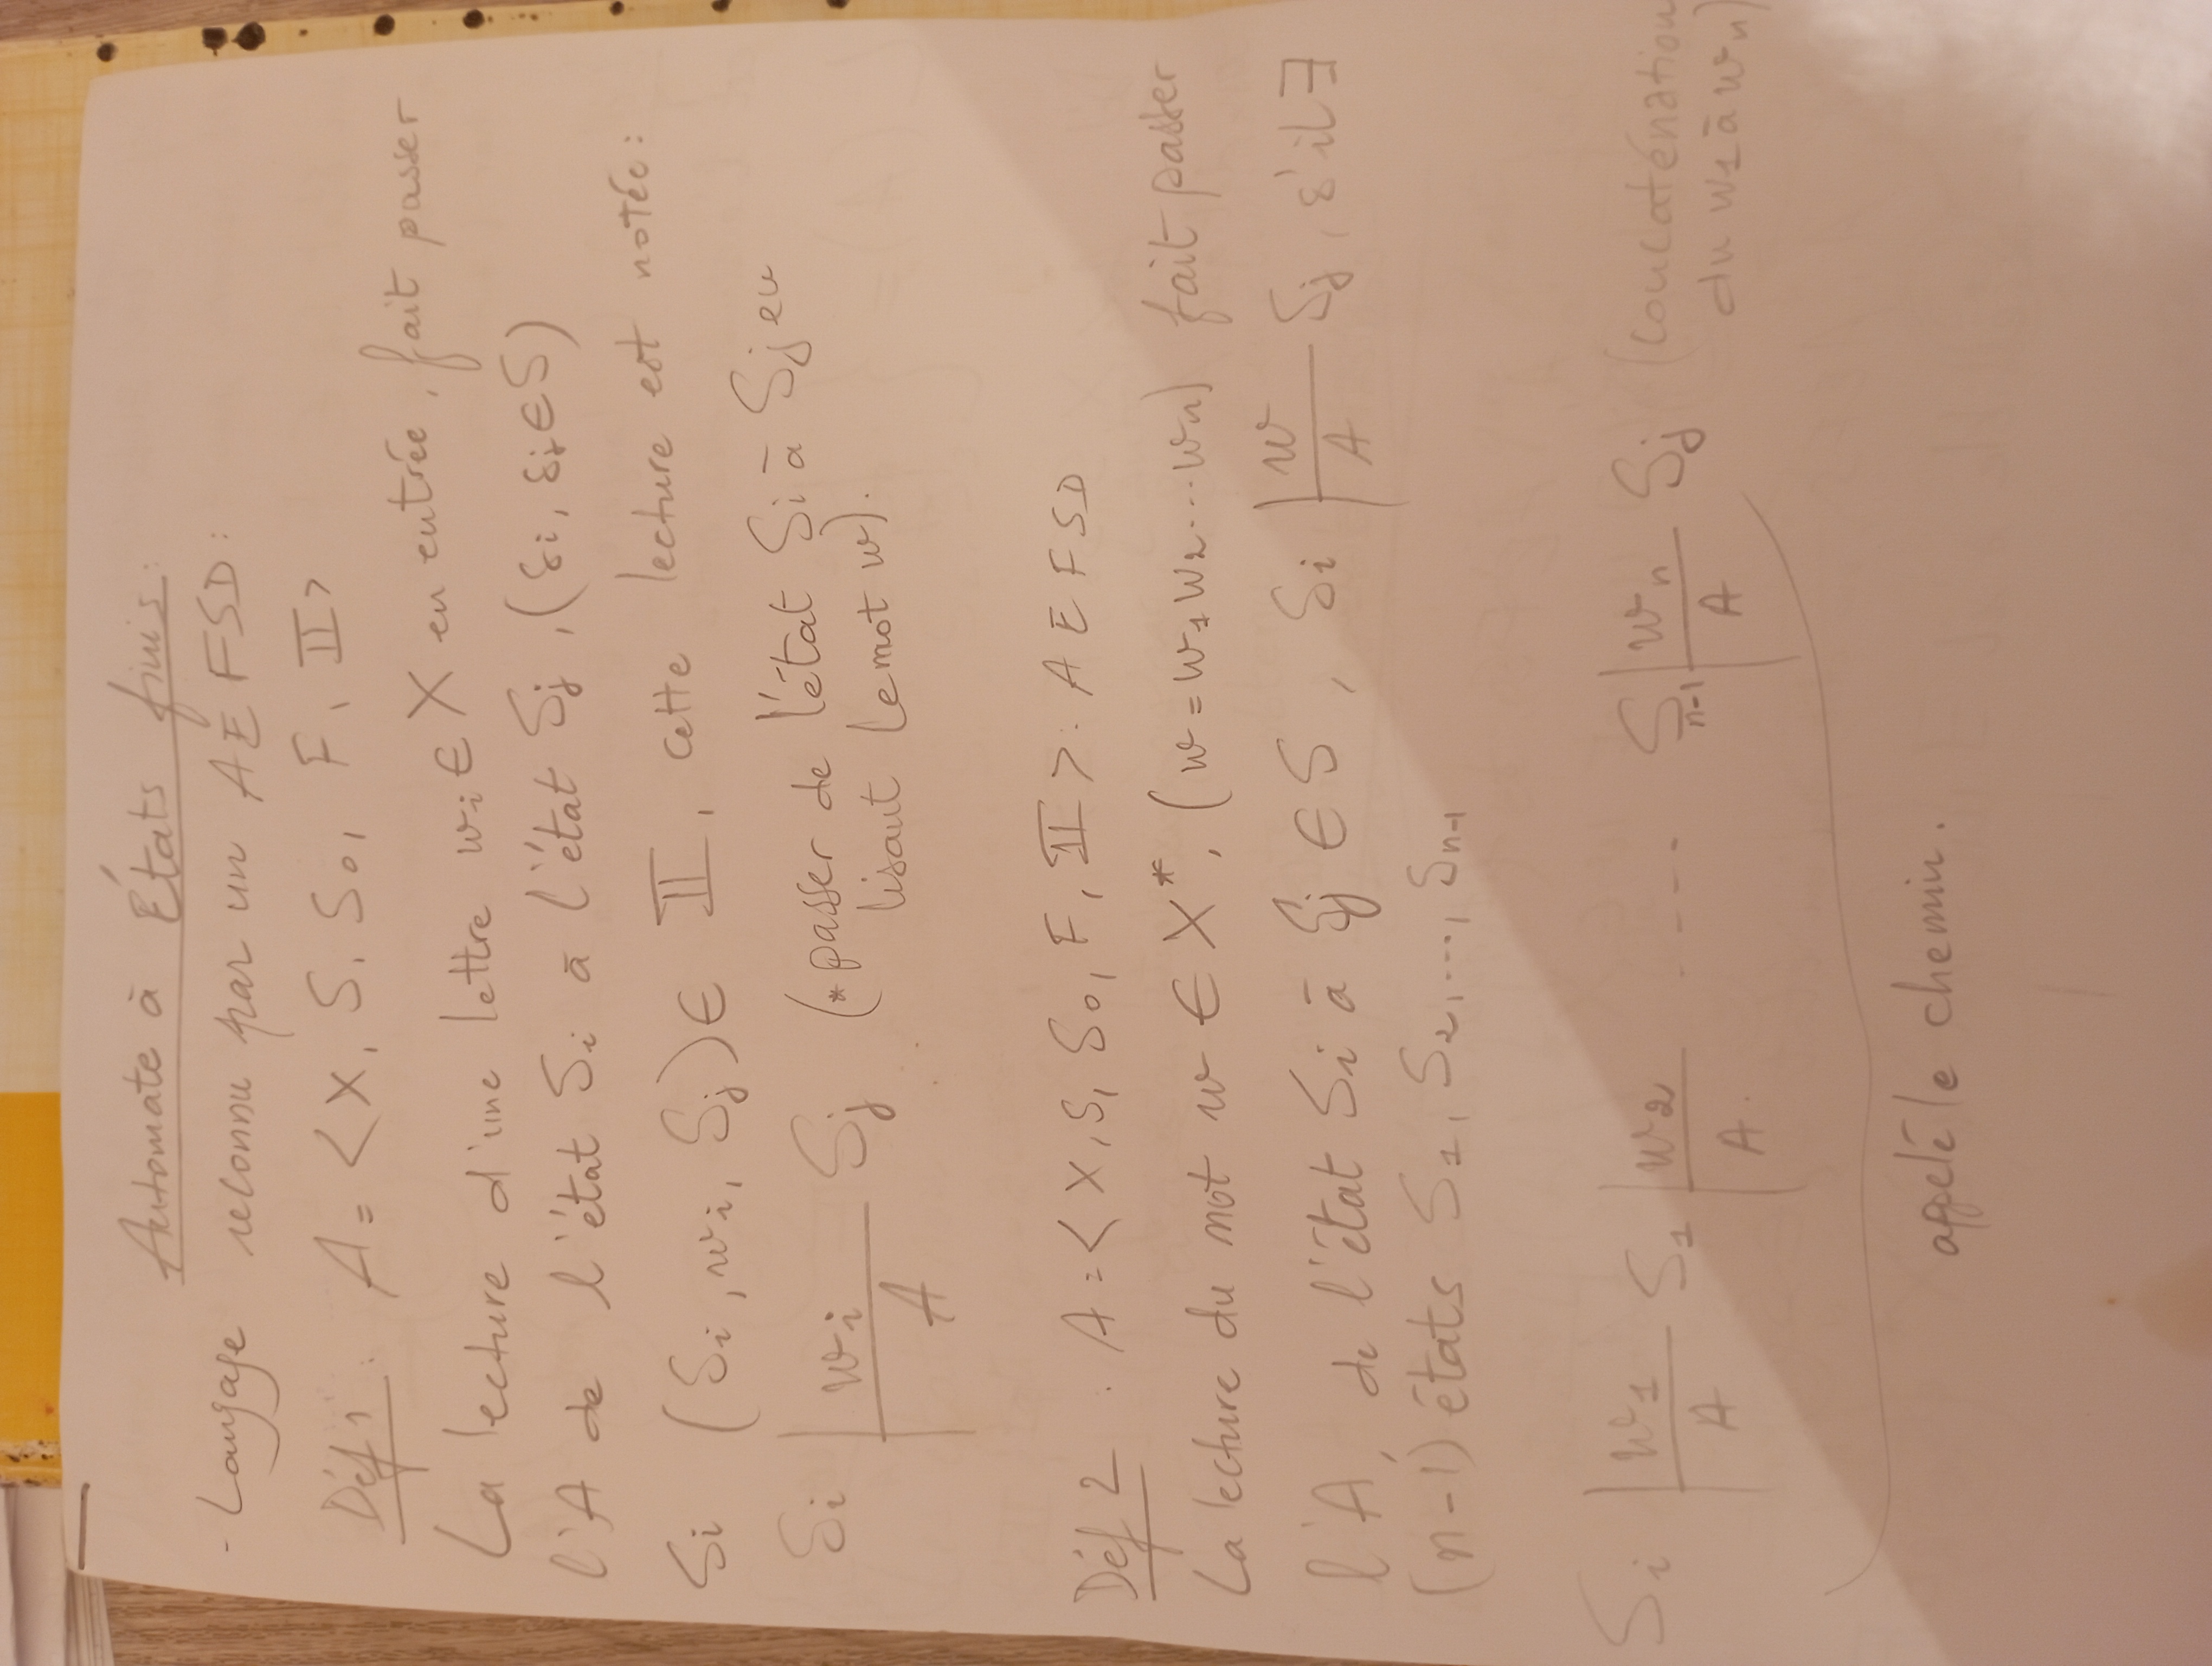 Automate à États finis :
- Langage reconnu par un AEFSD :
Déf 1 : A = < X, S, S0, F, II >
La lecture d'une lettre wi ∈ X en entrée, fait passer
l'A de l'état Si à l'état Sj, (Si, Sj ∈ S)
Si (Si, wi, Sj) ∈ II, cette lecture est notée :
Si |wi/A Sj (*passer de l'état Si à Sj en
lisant le mot w).
Déf 2 . A = < X, S, S0, F, II > : AEFSD
La lecture du mot w ∈ X*, (w = w1 w2 ... wn) fait passer
l'A, de l'état Si à Sj ∈ S, Si |w/A Sj, s'il ∃
(n-1) états S1, S2, ..., Sn-1
Si |w1/A S1 |w2/A .... Sn-1 |wn/A Sj (concaténation
du w1 à wn)
appelé le chemin.